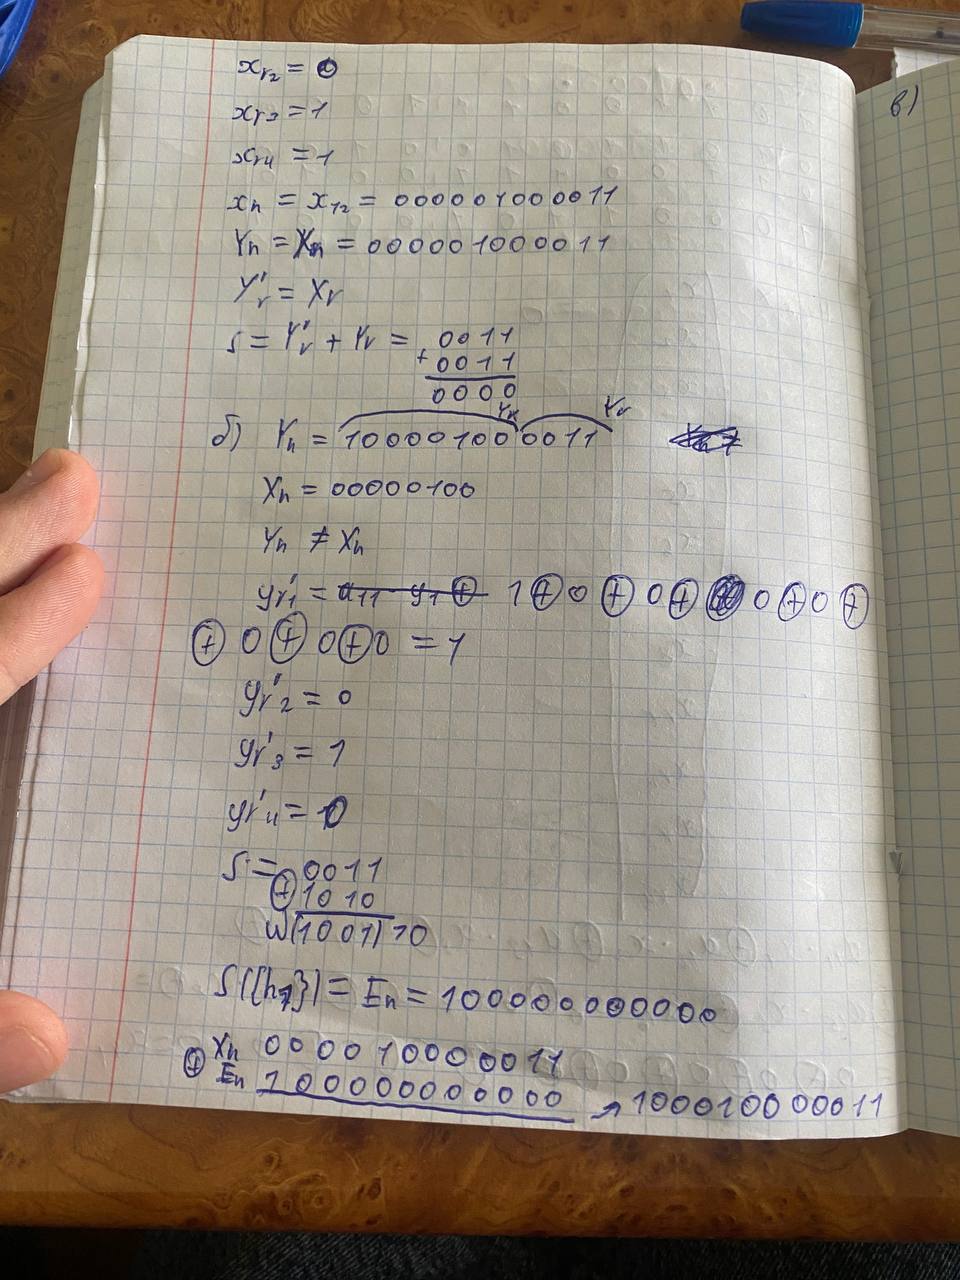 x_r2 = 0
x_r3 = 1
x_r4 = 1
x_n = x_12 = 000001000011
Y_n = X_n = 000001000011
Y'_r = X_r
S = Y'_r + Y_r = 0011
+ 0011
0000
Y_k Y_r
б) Y_n = 100001000011
X_n = 00000100
Y_n ≠ X_n
y_r'1 = 1 ⊕ 0 ⊕ 0 ⊕ 0 ⊕ 0 ⊕
⊕ 0 ⊕ 0 ⊕ 0 = 1
y_r'2 = 0
y_r'3 = 1
y_r'4 = 0
S = 0011
⊕ 1010
W(1001) > 0
S({h_1}) = E_n = 100000000000
X_n 000010000011
⊕ E_n 100000000000 → 100010000011
в)